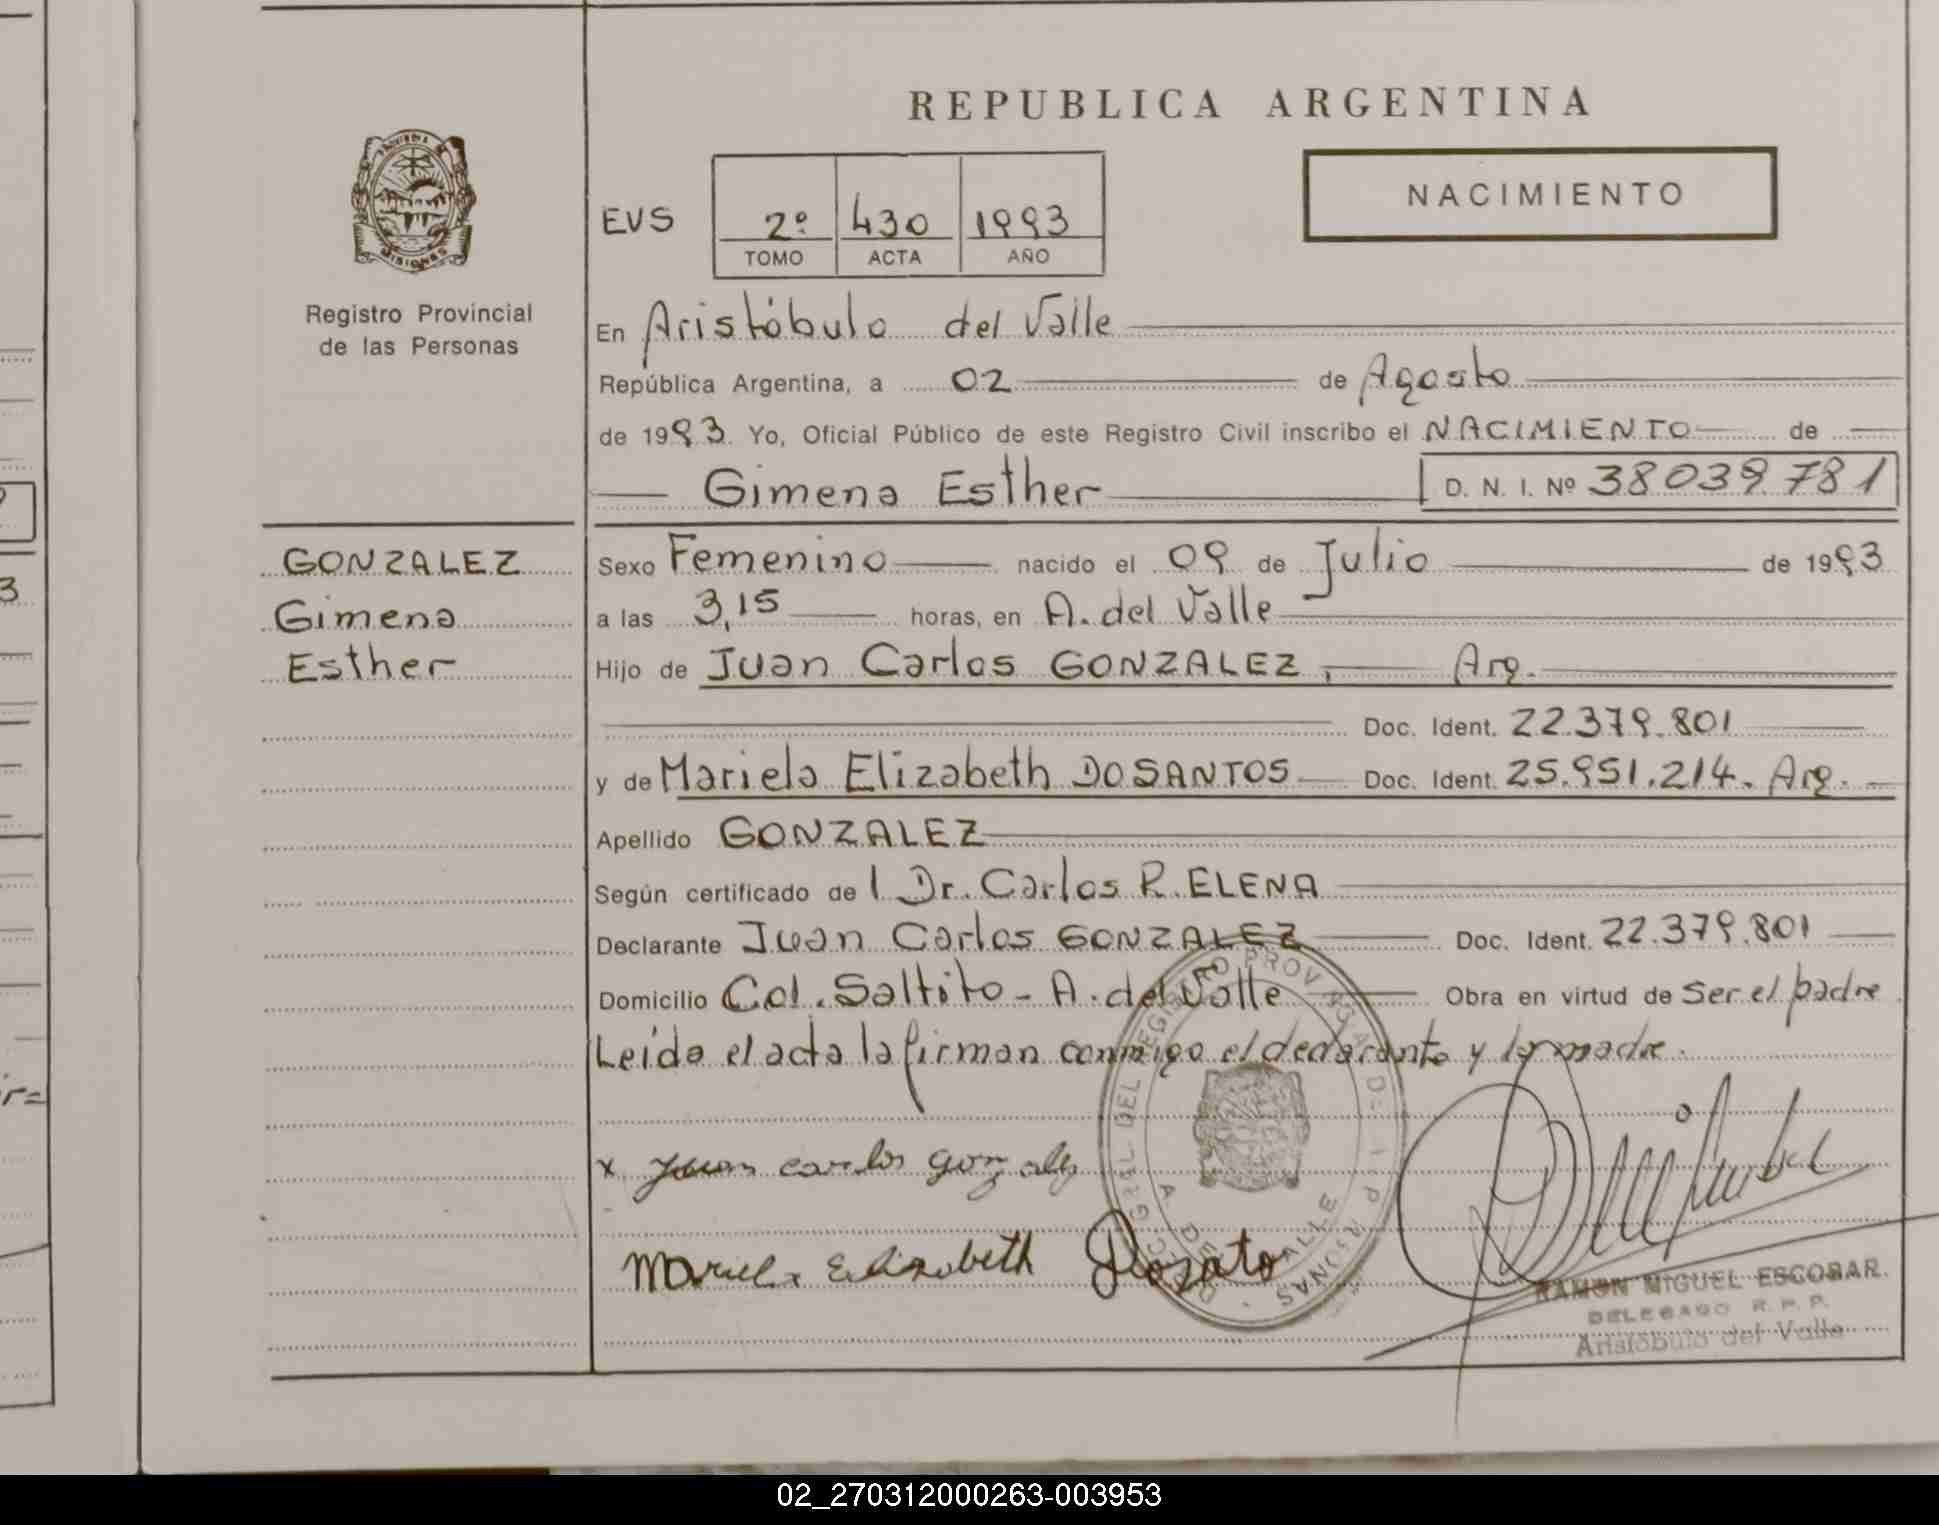 REPUBLICA ARGENTINA
NACIMIENTO
EVS 2º 430 1993
TOMO ACTA AÑO
Registro Provincial
de las Personas
En Aristóbulo del Valle
República Argentina, a 02 de Agosto
de 1993. Yo, Oficial Público de este Registro Civil inscribo el NACIMIENTO de
Gimena Esther D. N. I. Nº 38039.781
GONZALEZ
Gimena
Esther
Sexo Femenino nacido el 09 de Julio de 1993
a las 3,15 horas, en A. del Valle
Hijo de Juan Carlos GONZALEZ, Arg.
Doc. Ident. 22.379.801
y de Mariela Elizabeth DOSANTOS Doc. Ident. 25.951.214. Arg.
Apellido GONZALEZ
Según certificado de l Dr. Carlos R. ELENA
Declarante Juan Carlos GONZALEZ Doc. Ident. 22.379.801
Domicilio Col. Saltito - A. del Valle Obra en virtud de Ser el padre
Leída el acta la firman conmigo el declarante y la madre.
x Juan carlos gonzalez
Mariela Elizabeth
RAMON MIGUEL ESCOBAR
DELEGADO R. P. P.
Aristóbulo del Valle
02_270312000263-003953